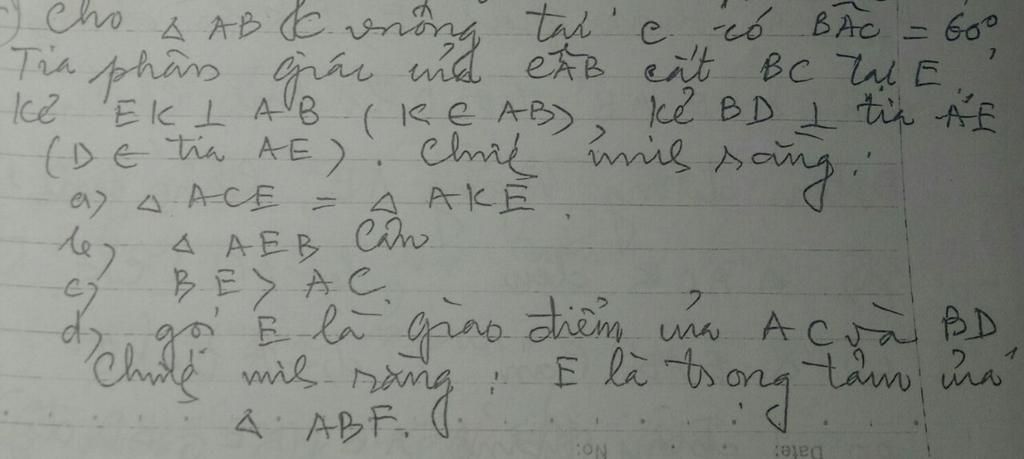 ) Cho △ ABC vuông tại C có BÂC = 60°
Tia phân giác của CÂB cắt BC tại E,
Kẻ EK ⊥ AB (K ∈ AB), kẻ BD ⊥ tia AE
(D ∈ tia AE). Chứng minh rằng:
a) △ ACE = △ AKE.
b) △ AEB Cân
c) BE > AC.
d) gọi E là giao điểm của AC và BD
Chứng minh rằng: E là trọng tâm của
△ ABF.
Date:
No: